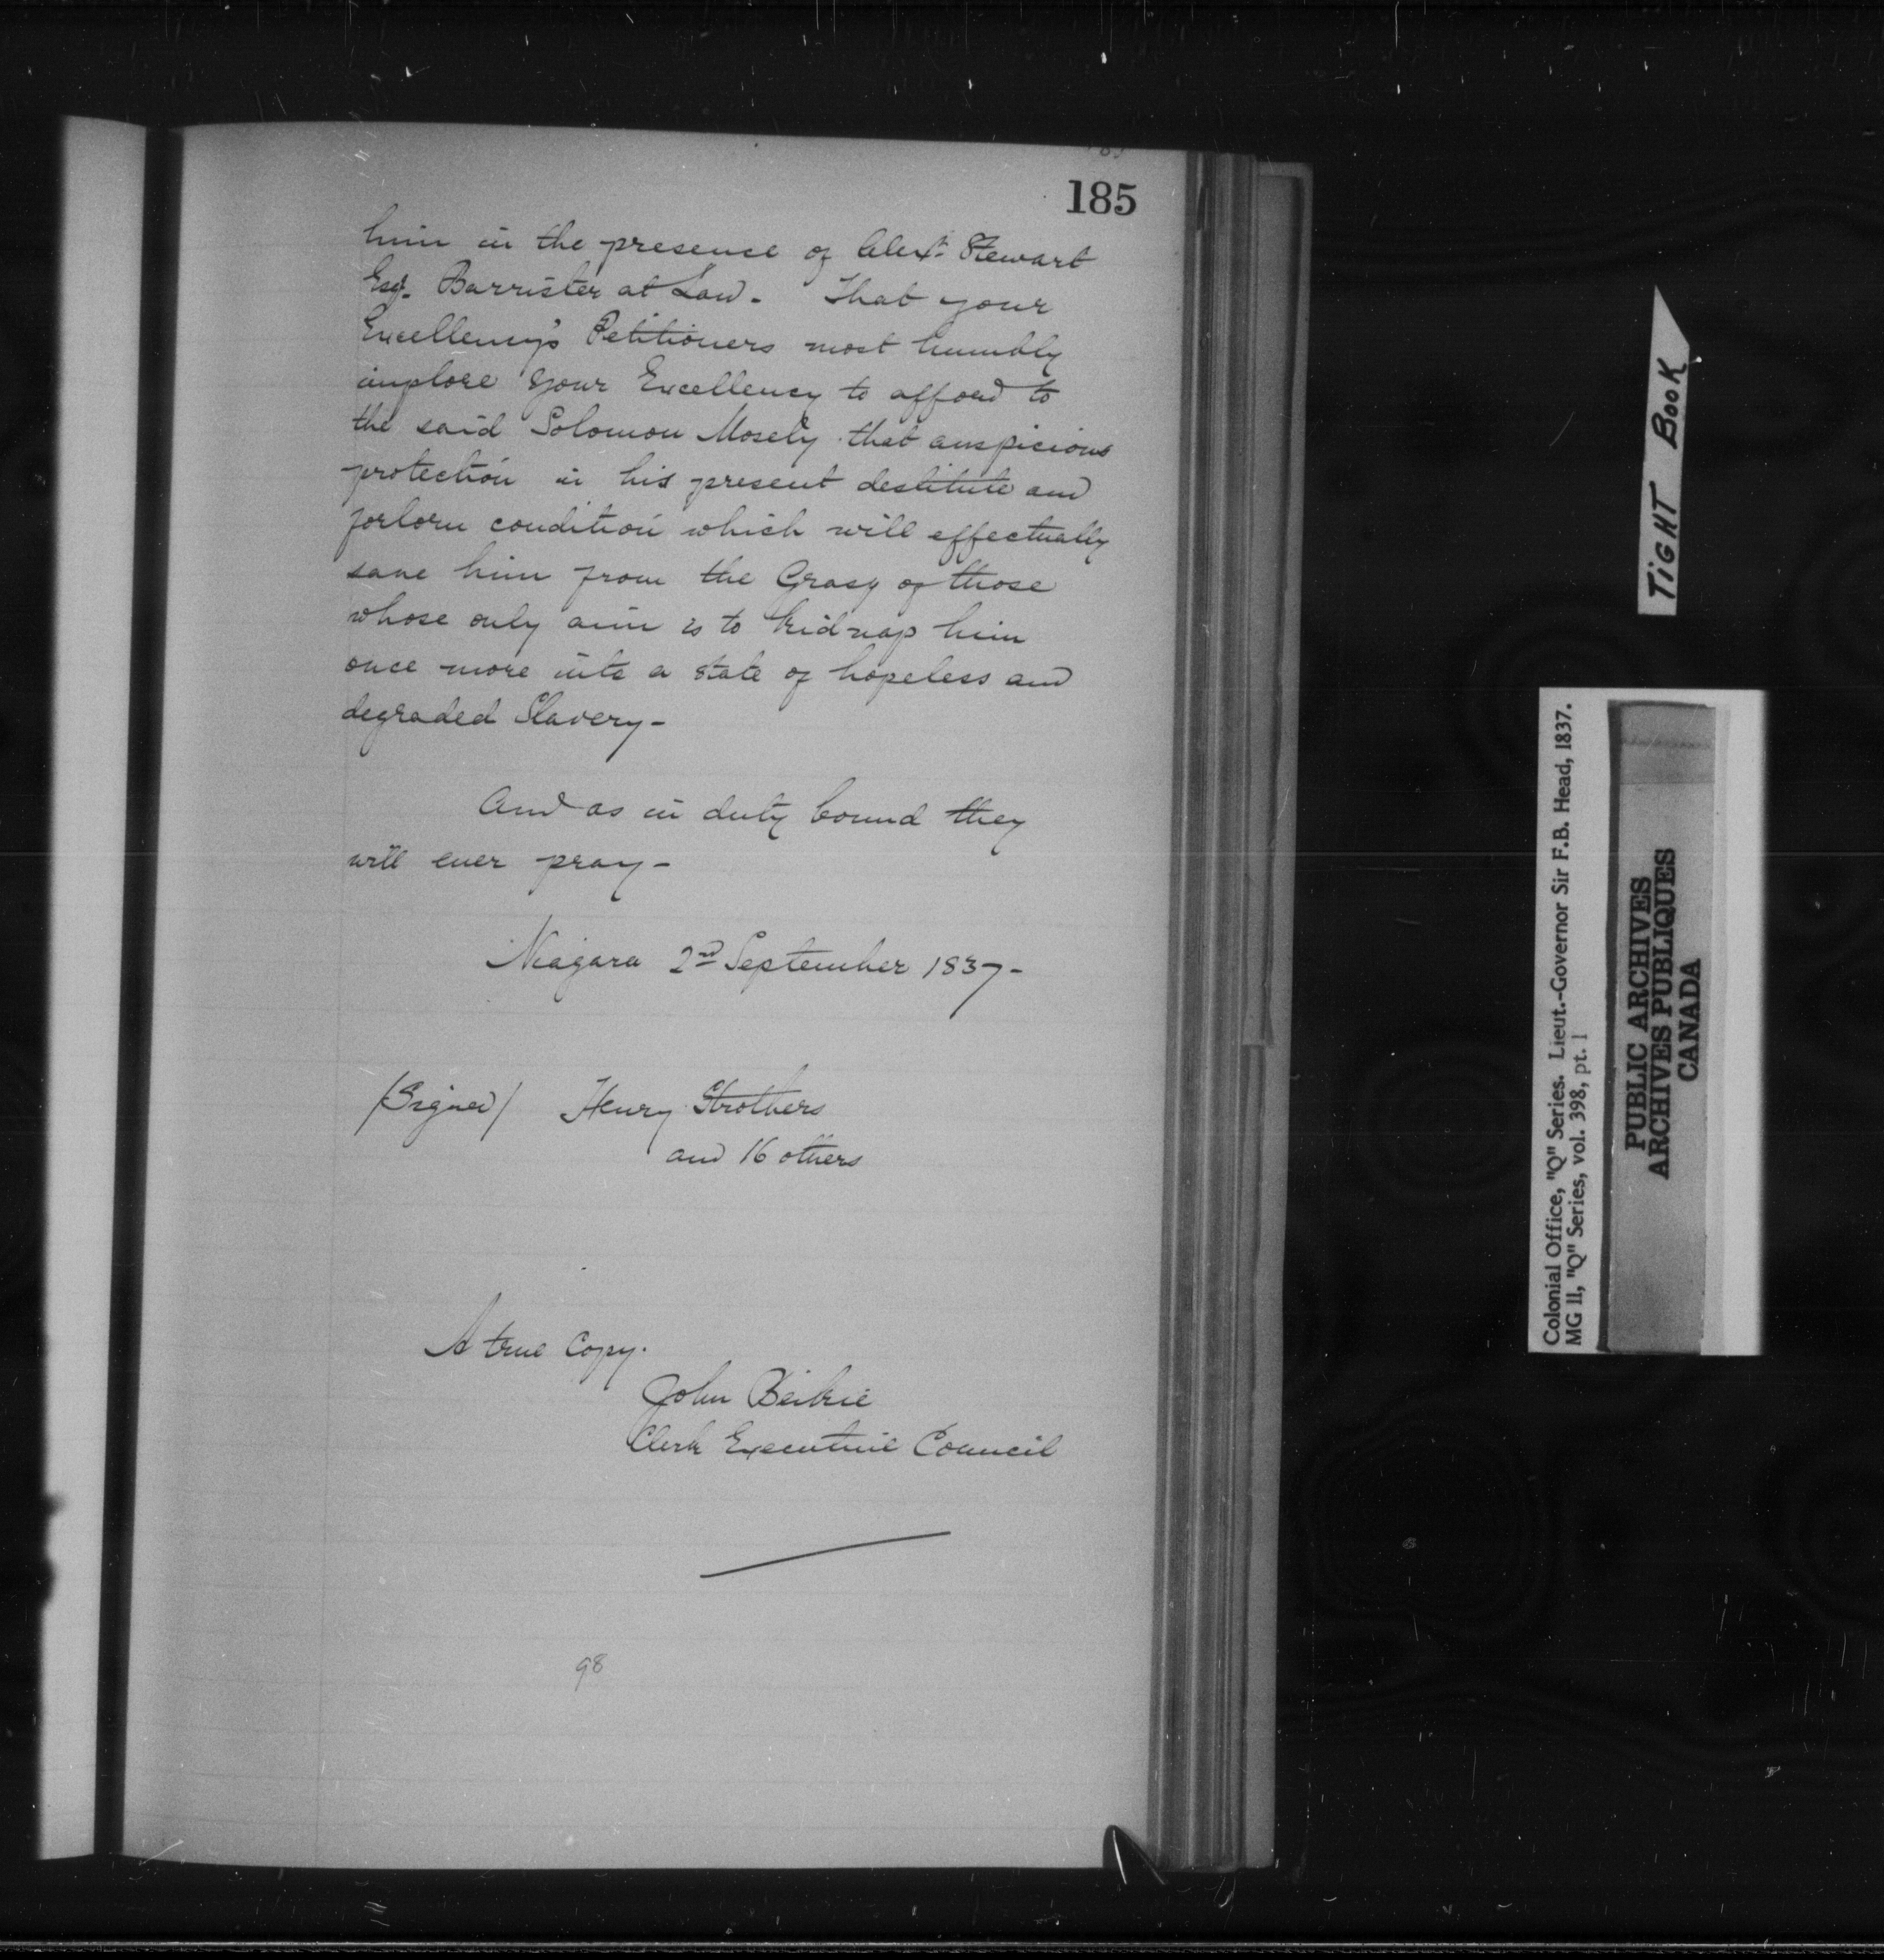 185
him in the presence of Alexr. Stewart
Esqr. Barrister at Law. That your
Excellency's Petitioners most humbly
implore your Excellency to afford to
the said Solomon Mosely that auspicious
protection in his present destitute and
forlorn condition which will effectually
save him from the Grasp of those
whose only aim is to kidnap him
once more into a state of hopeless and
degraded Slavery-
And as in duty bound they
will ever pray-
Niagara 2nd September 1837-
(Signed) Henry Strothers
and 16 others
A true Copy.
John Beikie
Clerk Executive Council
98
TIGHT BOOK
Colonial Office, "Q" Series. Lieut.-Governor Sir F.B. Head, 1837.
MG 11, "Q" Series, vol. 398, pt. 1
PUBLIC ARCHIVES
ARCHIVES PUBLIQUES
CANADA